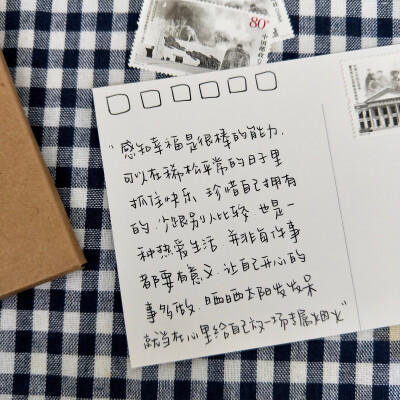 80分
中国邮政
"感知幸福是很棒的能力.
可以在稀松平常的日子里
抓住快乐 珍惜自己拥有
的.少跟别人比较 也是一
种热爱生活 并非每件事
都要有意义.让自己开心的
事多做.晒晒太阳发发呆
就当在心里给自己放一场专属烟火"